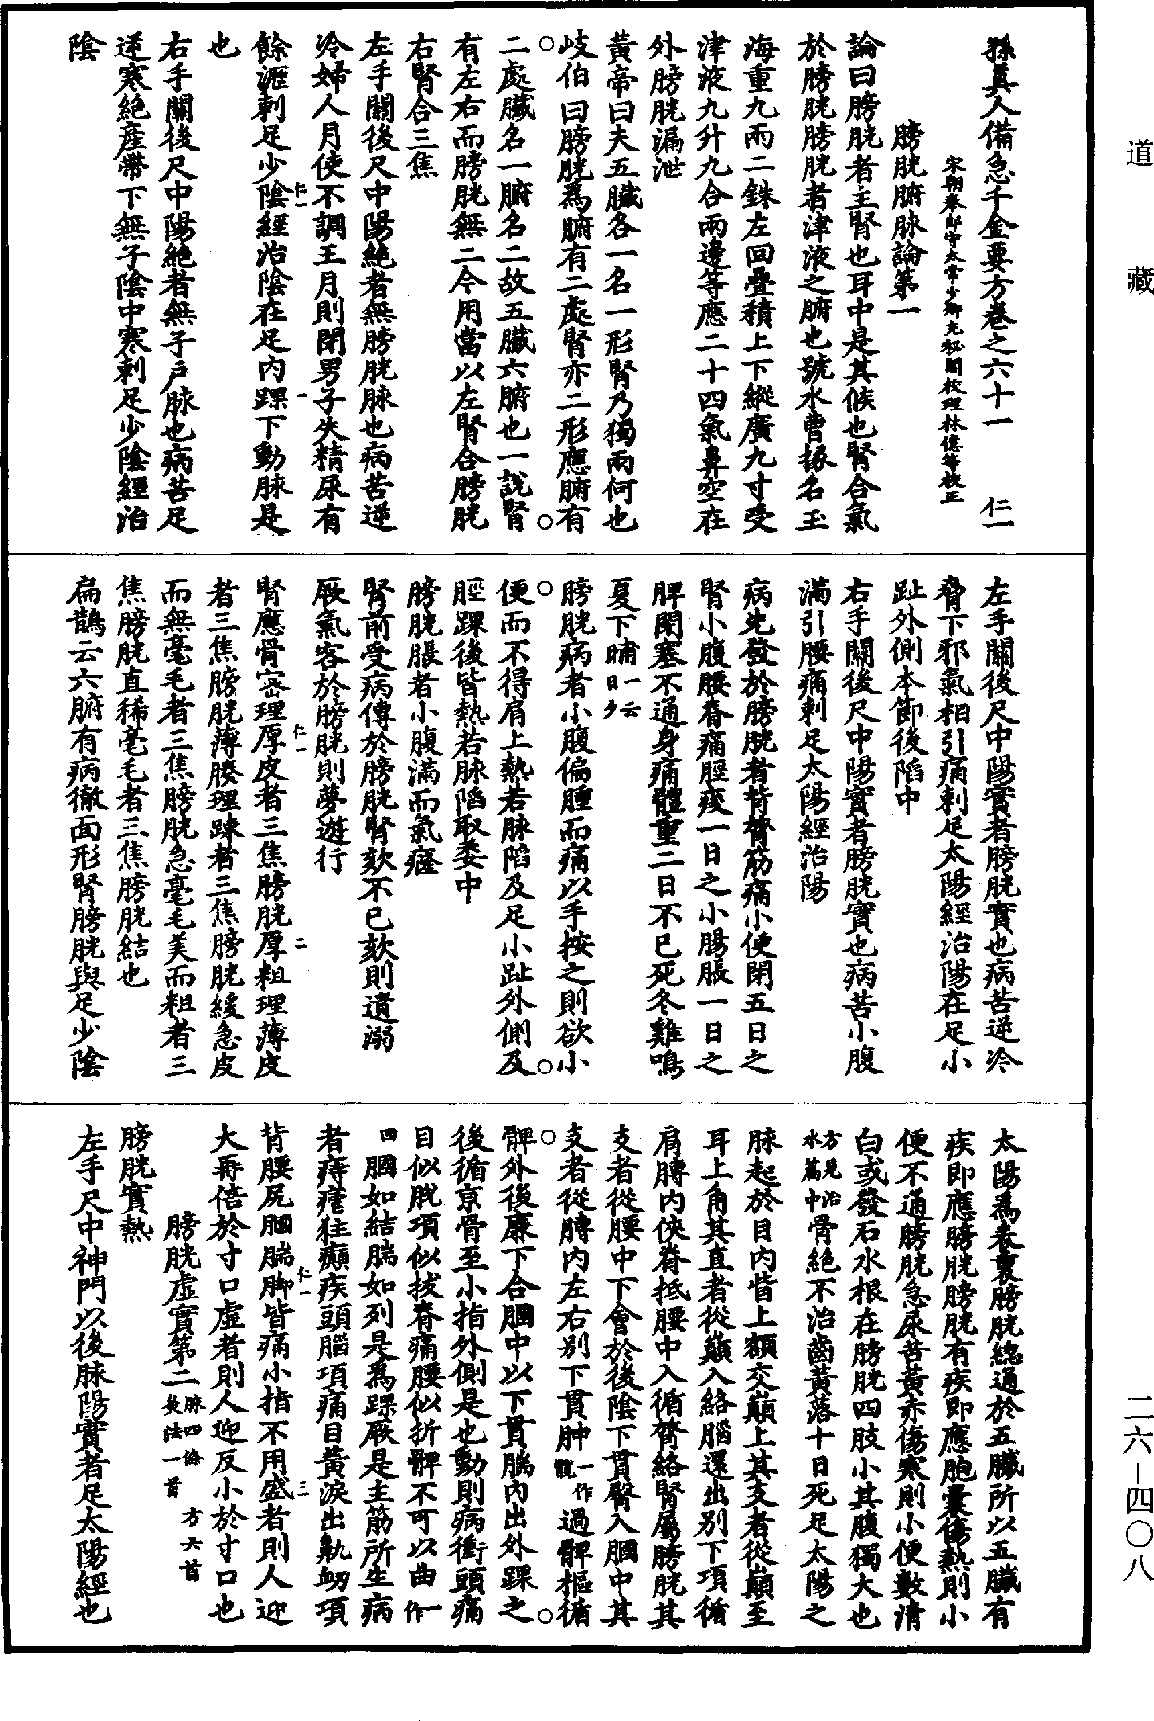 道藏
孫真人備急千金要方卷之六十一 仁一
宋朝奉郎守太常少卿充秘閣校理林億等校正
膀胱腑脉論第一
論曰膀胱者主腎也耳中是其候也腎合氣
於膀胱膀胱者津液之腑也號水曹掾名玉
海重九兩二銖左回疊積上下縱廣九寸受
津液九升九合兩邊等應二十四氣鼻空在
外膀胱漏泄
黃帝曰夫五臟各一名一形腎乃獨兩何也
岐伯曰膀胱為腑有二處腎亦二形應腑有
二處臟名一腑名二故五臟六腑也一說腎
有左右而膀胱無二今用當以左腎合膀胱
右腎合三焦
左手關後尺中陽絕者無膀胱脉也病苦逆
冷婦人月使不調王月則閉男子失精尿有
餘瀝刺足少陰經治陰在足內踝下動脉是
也
右手關後尺中陽絕者無子戶脉也病苦足
逆寒絕産帶下無子陰中寒刺足少陰經治
陰
左手關後尺中陽實者膀胱實也病苦逆冷
脅下邪氣相引痛刺足太陽經治陽在足小
趾外側本節後陷中
右手關後尺中陽實者膀胱實也病苦小腹
滿引腰痛刺足太陽經治陽
病先發於膀胱者背膂筋痛小便閉五日之
腎小腹腰脊痛脛痠一日之小腸脹一日之
脾閉塞不通身痛體重二日不已死冬雞鳴
夏下晡一云日夕
膀胱病者小腹偏腫而痛以手按之則欲小
便而不得肩上熱若脉陷及足小趾外側及
脛踝後皆熱若脉陷取委中
膀胱脹者小腹滿而氣癃
腎前受病傳於膀胱腎欬不已欬則遺溺
厥氣客於膀胱則夢遊行
腎應骨密理厚皮者三焦膀胱厚粗理薄皮
者三焦膀胱薄腠理踈者三焦膀胱緩急皮
而無毫毛者三焦膀胱急毫毛美而粗者三
焦膀胱直稀毫毛者三焦膀胱結也
扁鵲云六腑有病徹面形腎膀胱與足少陰
太陽為表裏膀胱總通於五臟所以五臟有
疾即應膀胱膀胱有疾即應胞囊傷熱則小
便不通膀胱急尿苦黃赤傷寒則小便數清
白或發石水根在膀胱四肢小其腹獨大也
方見治水篇中骨絕不治齒黃落十日死足太陽之
脉起於目內眥上額交巔上其支者從巔至
耳上角其直者從巔入絡腦還出別下項循
肩膊內俠脊抵腰中入循膂絡腎屬膀胱其
支者從腰中下會於後陰下貫臀入膕中其
支者從膊內左右別下貫胂一作髖過髀樞循
髀外後廉下合膕中以下貫腨內出外踝之
後循京骨至小指外側是也動則病衝頭痛
目似脫項似拔脊痛腰似折髀不可以曲一作
回膕如結腨如列是為踝厥是主筋所生病
者痔瘧狂癲疾頭腦項痛目黃淚出鼽衂項
背腰尻膕腨脚皆痛小指不用盛者則人迎
大再倍於寸口虛者則人迎反小於寸口也
膀胱虛實第二 脉四條 方六首 灸法一首
膀胱實熱
左手尺中神門以後脉陽實者足太陽經也
二六—四〇八